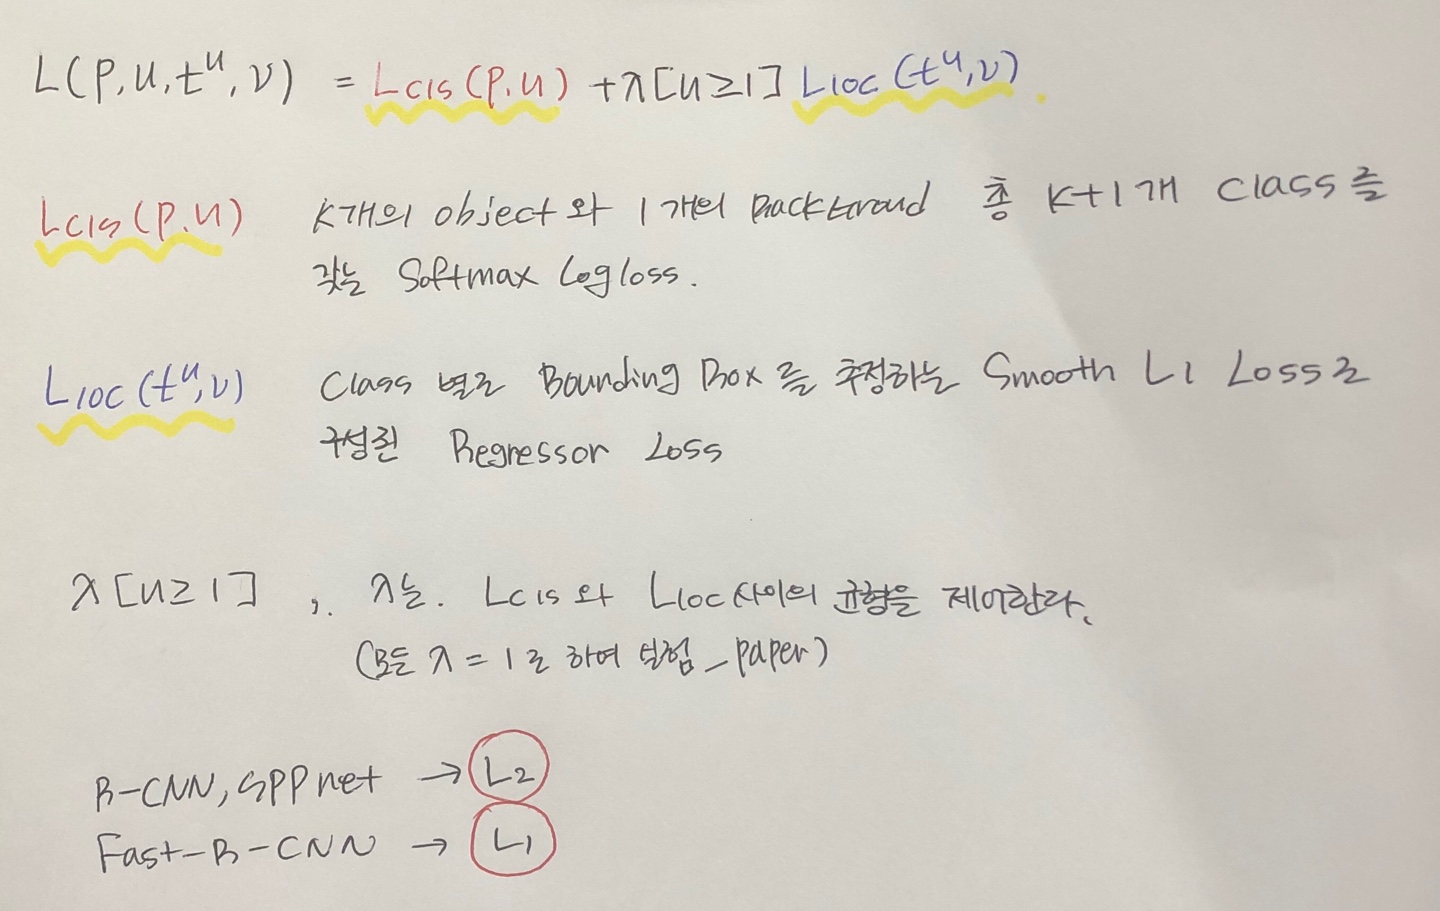 L(P,u,tᵘ,v) = Lcls(P,u) + λ[u≥1] Lloc(tᵘ,v)
Lcls(P,u) K개의 object 와 1개의 Background 총 K+1개 Class를
갖는 Softmax Log loss.
Lloc(tᵘ,v) Class 별로 Bounding Box 를 추정하는 Smooth L1 Loss로
구성된 Regressor Loss
λ[u≥1] , λ는. Lcls 와 Lloc 사이의 균형을 제어한다.
(모든 λ = 1로 하여 실험_paper)
R-CNN, SPP net → L2
Fast-R-CNN → L1